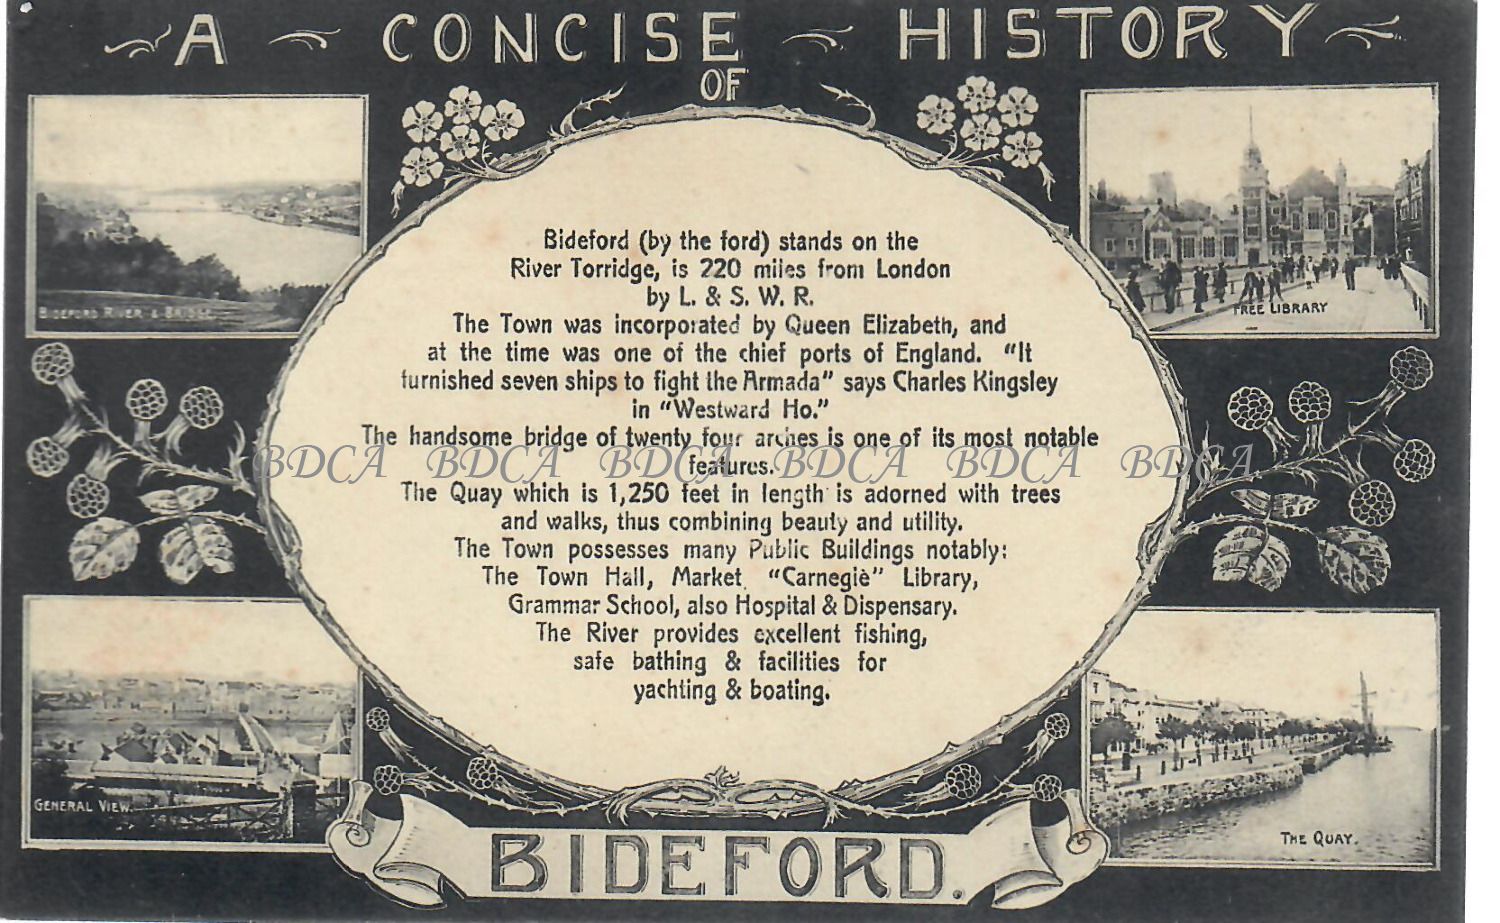 A CONCISE HISTORY
OF
Bideford (by the ford) stands on the
River Torridge, is 220 miles from London
by L. & S. W. R.
The Town was incorporated by Queen Elizabeth, and
at the time was one of the chief ports of England. "It
furnished seven ships to fight the Armada" says Charles Kingsley
in "Westward Ho."
The handsome bridge of twenty four arches is one of its most notable
features.
The Quay which is 1,250 feet in length is adorned with trees
and walks, thus combining beauty and utility.
The Town possesses many Public Buildings notably:
The Town Hall, Market, "Carnegiè" Library,
Grammar School, also Hospital & Dispensary.
The River provides excellent fishing,
safe bathing & facilities for
yachting & boating.
BIDEFORD.
BIDEFORD RIVER & BRIDGE.
FREE LIBRARY
GENERAL VIEW.
THE QUAY.
BDCA BDCA BDCA BDCA BDCA BDCA